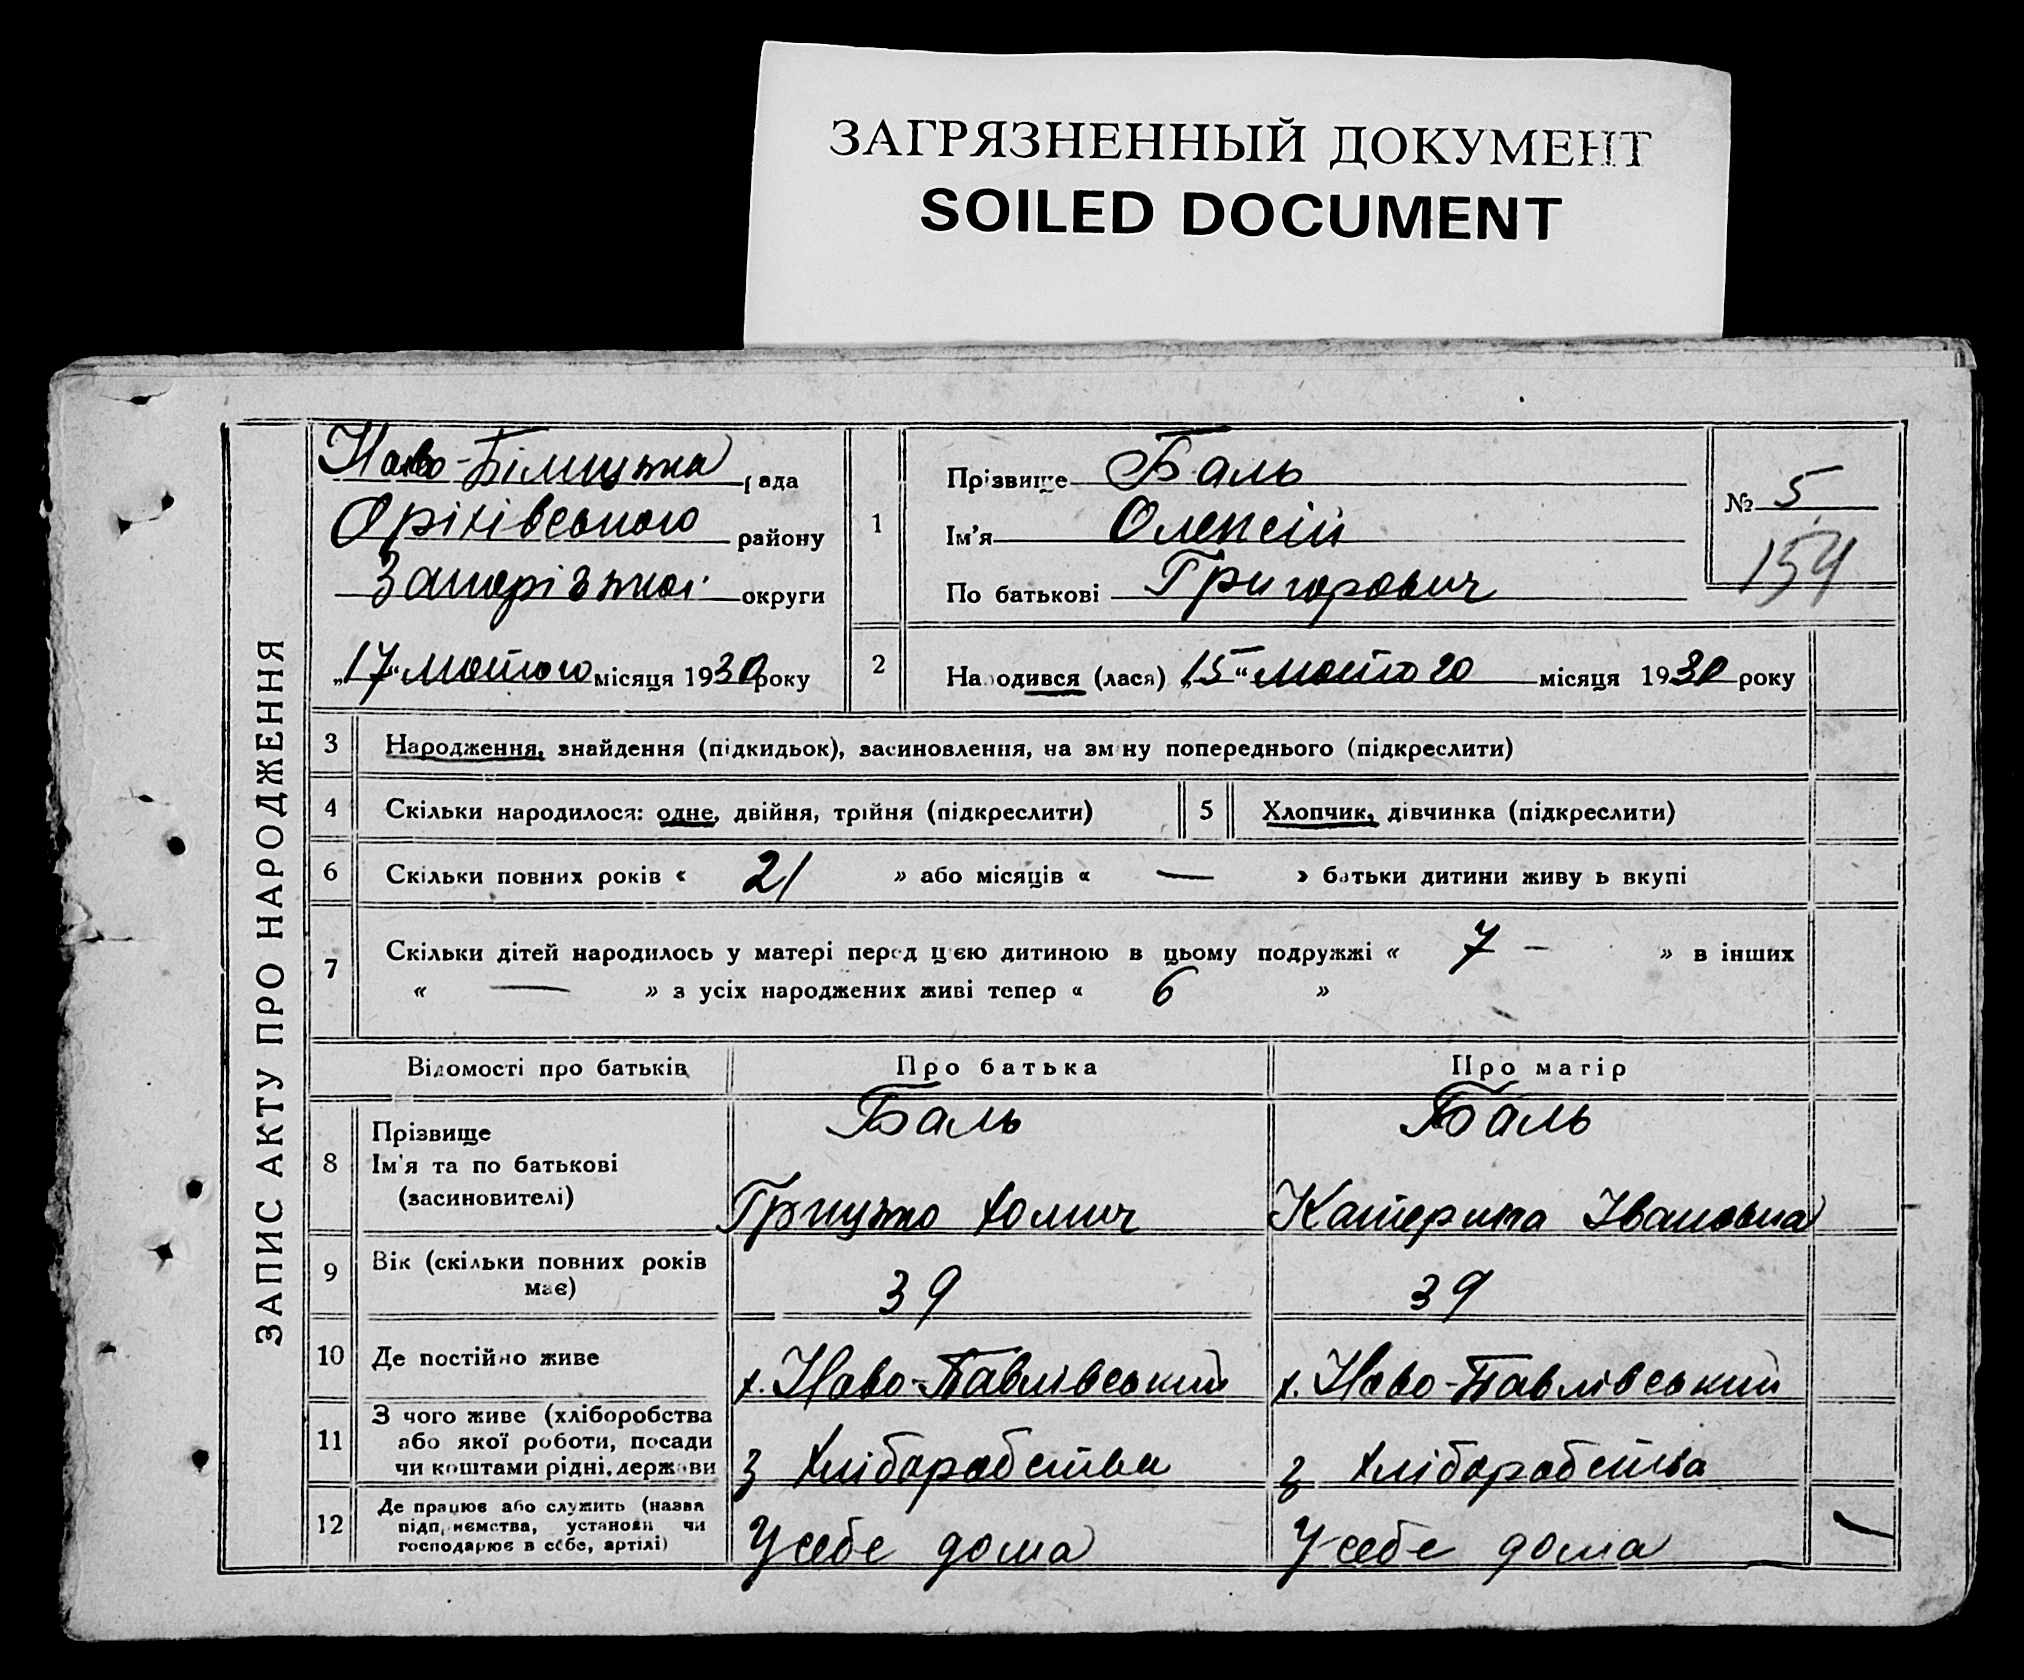 ЗАГРЯЗНЕННЫЙ ДОКУМЕНТ
SOILED DOCUMENT
ЗАПИС АКТУ ПРО НАРОДЖЕННЯ
рада
Оріхівського району
Запорізької округи
„17“ лютого місяця 1930 року
1
Прізвище Баль
Ім'я Олексій
По батькові Григорович
№ 5
154
2
Народився (лася) „15“ лютого місяця 1930 року
3 Народження, знайдення (підкидьок), засиновлення, на зміну попереднього (підкреслити)
4 Скільки народилося: одне, двійня, трійня (підкреслити)
5 Хлопчик, дівчинка (підкреслити)
6 Скільки повних років « 21 » або місяців « — » батьки дитини живуть вкупі
7 Скільки дітей народилось у матері перед цією дитиною в цьому подружжі « 7 – » в інших
« — » з усіх народжених живі тепер « 6 »
Відомості про батьків Про батька Про матір
8 Прізвище
Ім'я та по батькові
(засиновителі)
Баль
Грицько Хомич
Баль
Катерина Івановна
9 Вік (скільки повних років
має)
39
39
10 Де постійно живе х. Ново-Павлівський х. Ново-Павлівський
11 З чого живе (хліборобства
або якої роботи, посади
чи коштами рідні, держави
з хліборобства з хліборобства
12 Де працює або служить (назва
підприємства, установи чи
господарює в себе, артілі)
У себе дома У себе дома